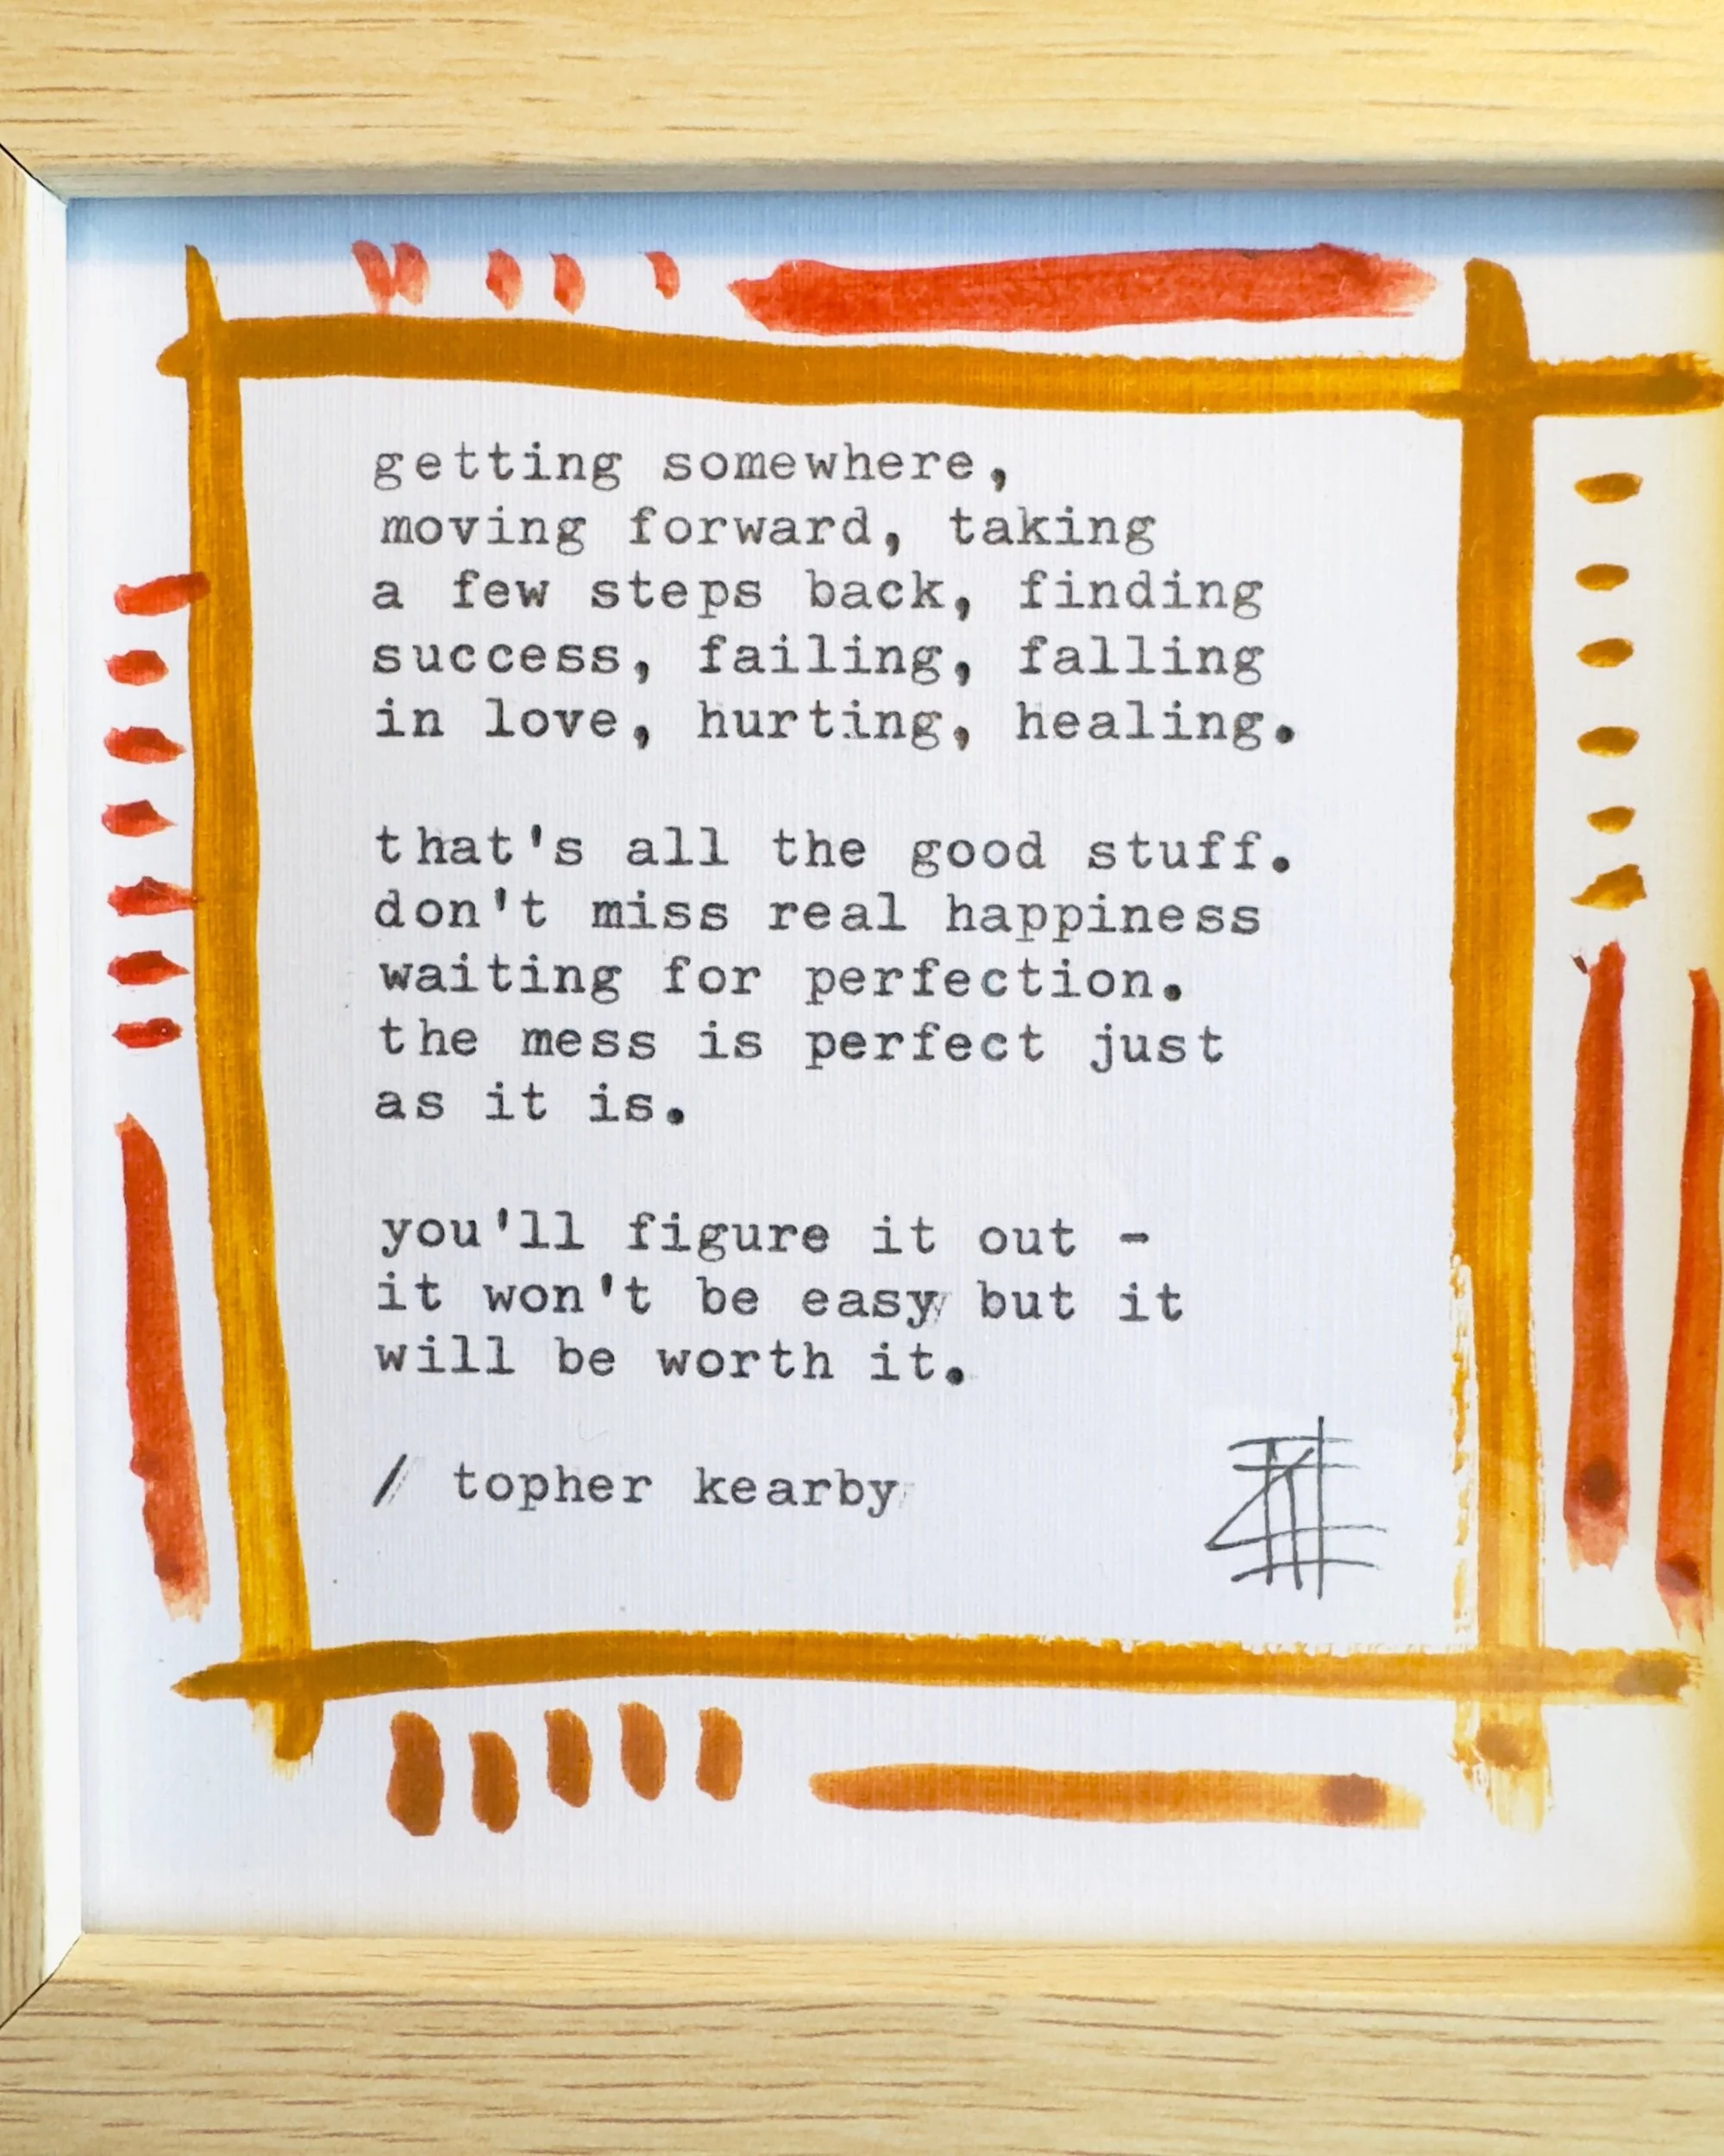 getting somewhere,
moving forward, taking
a few steps back, finding
success, failing, falling
in love, hurting, healing.
that's all the good stuff.
don't miss real happiness
waiting for perfection.
the mess is perfect just
as it is.
you'll figure it out -
it won't be easy but it
will be worth it.
/ topher kearby